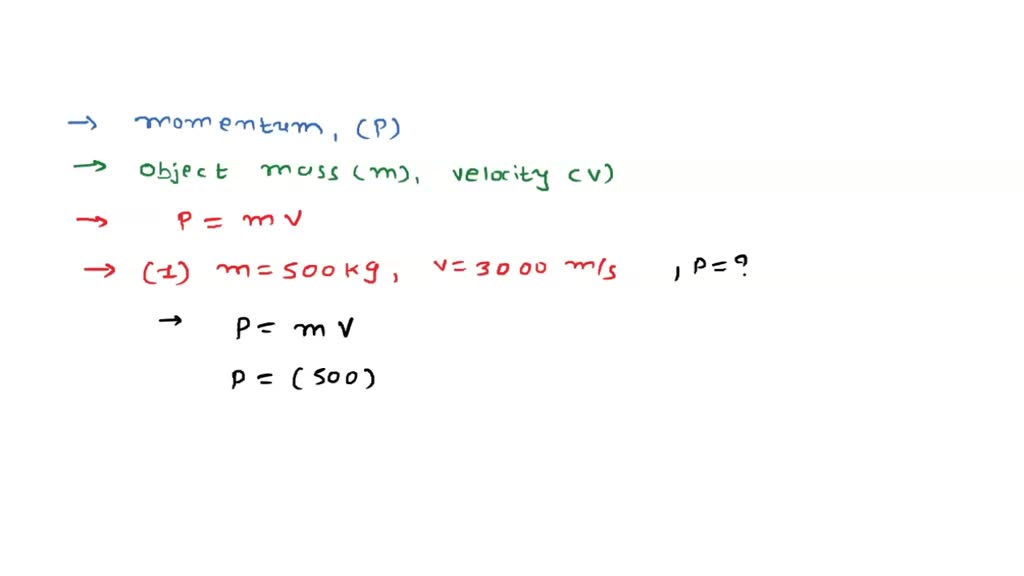 → momentum, (P)
→ object mass (m), velocity (v)
→ P = mv
→ (1) m = 500 kg, v = 3000 m/s , P = ?
→ P = mv
P = (500)